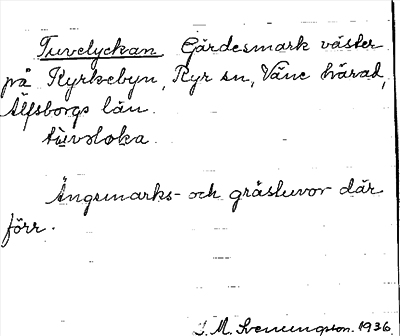 Tuvelyckan Gärdesmark väster
på Kyrkebyn, Ryr sn, Väne härad,
Älfsborgs län.
tùvəloka
Ängsmarks- och grästuvor där
förr.
J. M. Svenungson. 1936